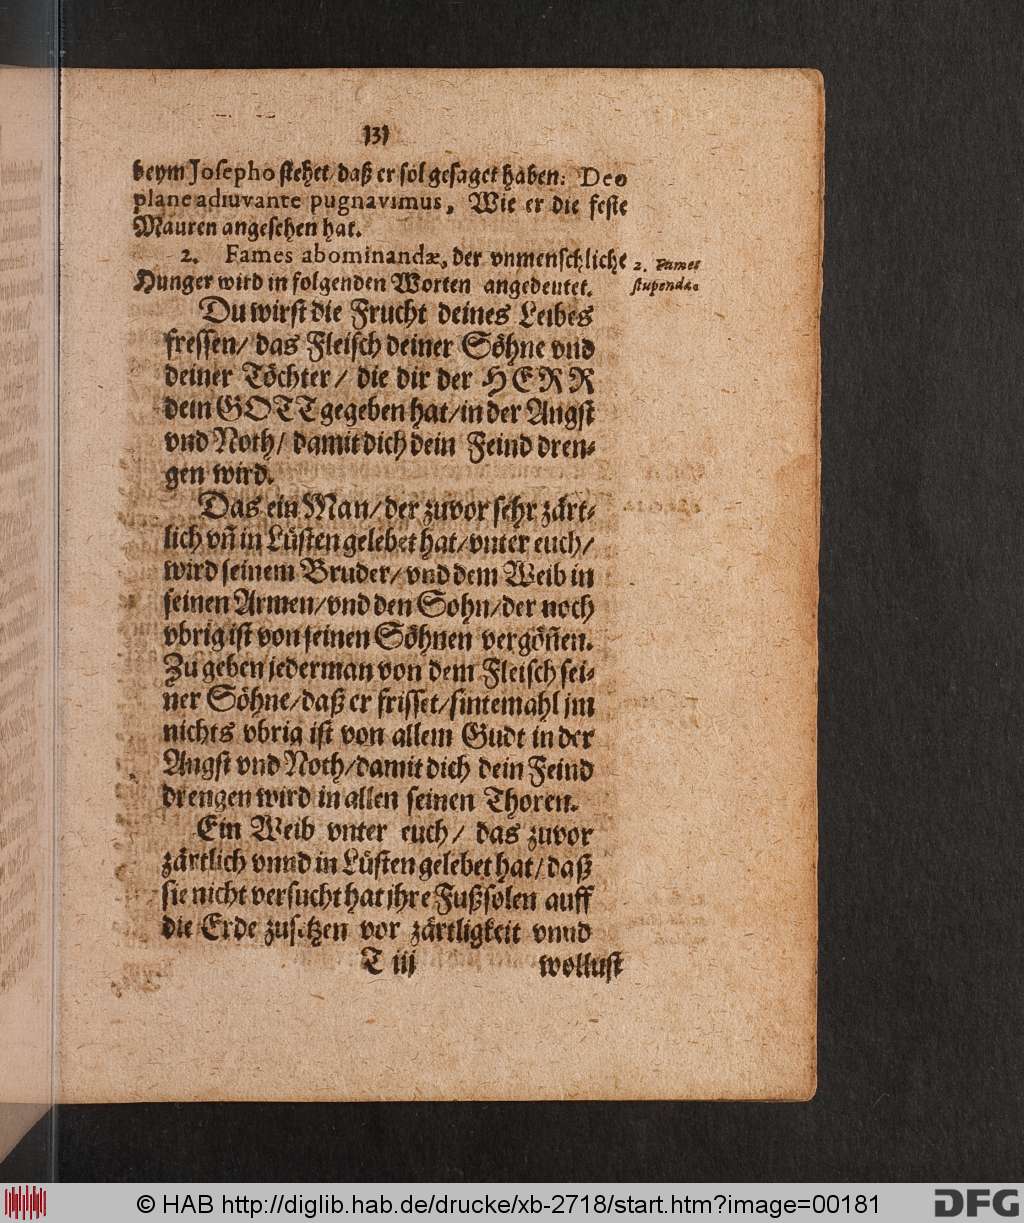 131
beym Josepho stehet/ daß er sol gesaget haben: Deo
plane adiuvante pugnavimus, Wie er die feste
Mauren angesehen hat.
2. Fames abominandæ, der vnmenschliche
Hunger wird in folgenden Worten angedeutet.
2. Fames
stupendæ.
Du wirst die Frucht deines Leibes
fressen/ das Fleisch deiner Söhne vnd
deiner Töchter/ die dir der HERR
dein GOTT gegeben hat/ in der Angst
vnd Noth/ damit dich dein Feind dren-
gen wird.
Das ein Man/ der zuvor sehr zärt-
lich vñ in Lüsten gelebet hat/ vnter euch/
wird seinem Bruder/ vnd dem Weib in
seinen Armen/ vnd den Sohn/ der noch
vbrig ist von seinen Söhnen vergöñen.
Zu geben jederman von dem Fleisch sei-
ner Söhne/ daß er frisset/ sintemahl jm
nichts vbrig ist von allem Gudt in der
Angst vnd Noth/ damit dich dein Feind
drengen wird in allen seinen Thoren.
Ein Weib vnter euch/ das zuvor
zärtlich vnnd in Lüsten gelebet hat/ daß
sie nicht versucht hat jhre Fußsolen auff
die Erde zusetzen vor zärtligkeit vnnd
T iij wollust
© HAB http://diglib.hab.de/drucke/xb-2718/start.htm?image=00181
DFG